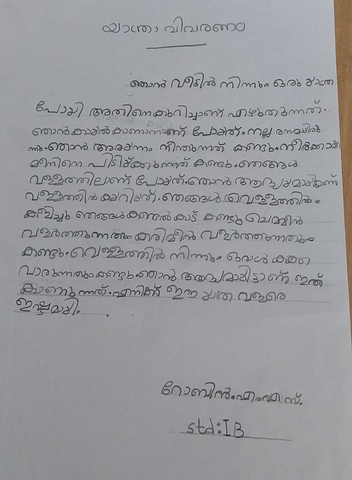 യാത്രാ വിവരണം
ഞാൻ വീട്ടിൽ നിന്നും ഒരു യാത്ര
പോയി അതിനെകുറിച്ചാണ് എഴുതുന്നത്.
ഞാൻ കായൽ കാണാനാണ് പോയത്. നല്ല രസമായിരു
ന്നു. ഞാൻ താറാവ് നീന്തുന്നത് കണ്ടു. നീർക്കാക്ക
മീനിനെ പിടിക്കുന്നത് കണ്ടു. ഞങ്ങൾ
വള്ളത്തിലാണ് പോയത്. ഞാൻ ആദ്യമായിട്ടാണ്
വള്ളത്തിൽ കയറിയത്. ഞങ്ങൾ വെള്ളത്തിൽ
കളിച്ചു ഞങ്ങൾ കണ്ടൽകാട് കണ്ടു ചെമ്മീൻ
വളർത്തുന്നതും കരിമീൻ വളർത്തുന്നതും
കണ്ടു. വെള്ളത്തിൽ നിന്നും ഒരാൾ കക്ക
വാരുന്നതും കണ്ടു. ഞാൻ ആദ്യമായിട്ടാണ് ഇത്
കാണുന്നത്. എനിക്ക് ഈ യാത്ര വളരെ
ഇഷ്ടമായി.
റോബിൻ. എം. എസ്.
std: I B